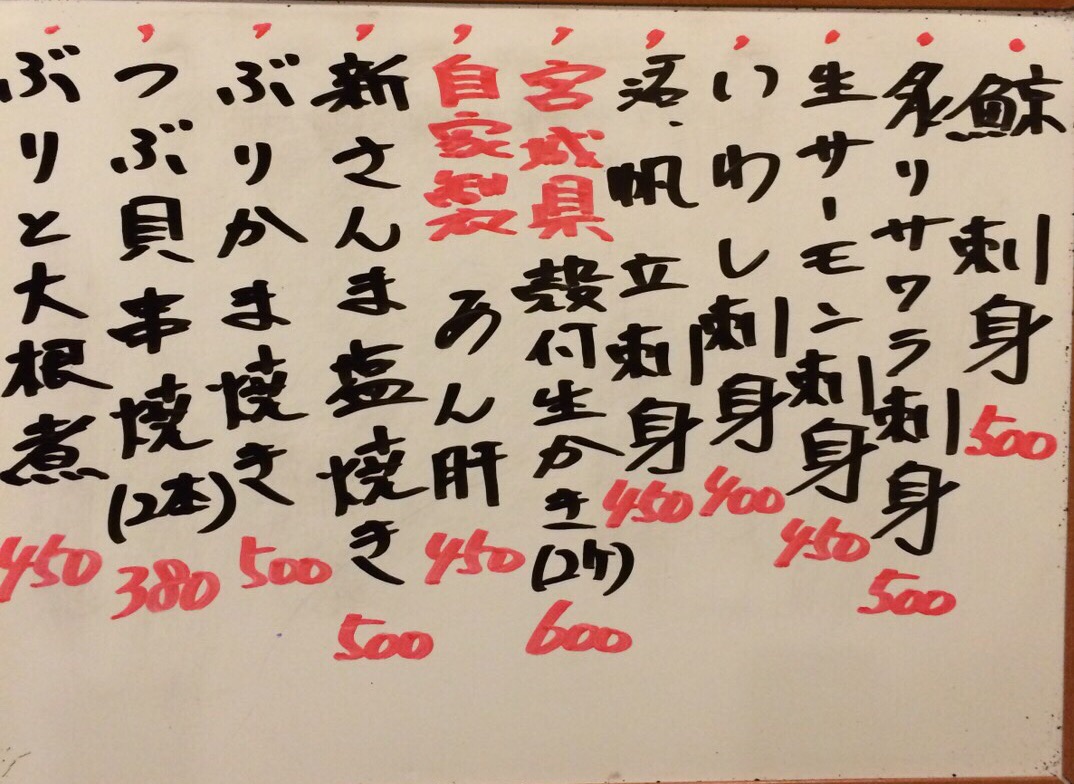 鯨刺身 500
炙りサワラ刺身 500
生サーモン刺身 450
いわし刺身 400
活帆立刺身 450
宮城県殻付生かき(2ケ) 600
自家製あん肝 450
新さんま塩焼き 500
ぶりかま焼き 500
つぶ貝串焼(2本) 380
ぶりと大根煮 450